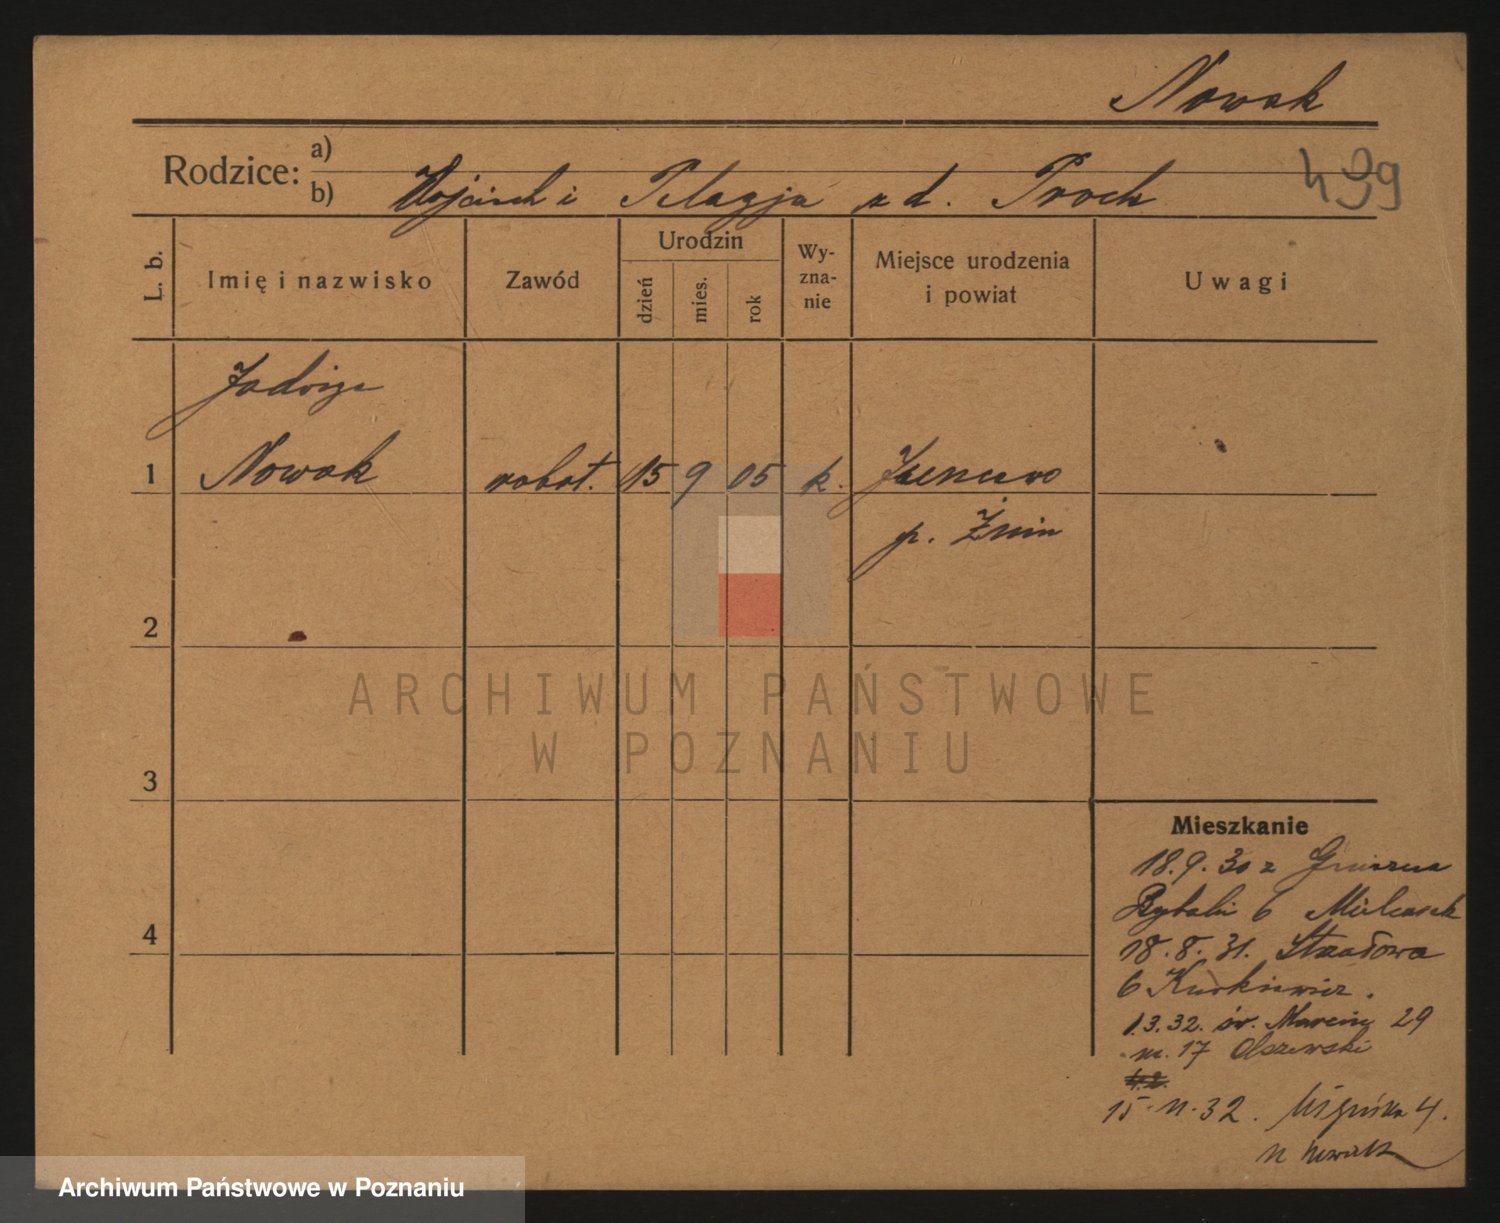 Nowak
Rodzice: a)
b) Wojciech i Pelagja z d. Proch
499
L. b. Imię i nazwisko Zawód Urodzin dzień mies. rok Wyznanie Miejsce urodzenia i powiat Uwagi
Jadwiga
1 Nowak robot. 15 9 05 k.
p. Żnin
2
3
4
Mieszkanie
18.9.30 z Gniezna
6
18.8.31.
6 Kurkiewicz.
1.3.32. św. Marcin 29
m. 17 Olszewski
15.11.32. 4.
ARCHIWUM PAŃSTWOWE
W POZNANIU
Archiwum Państwowe w Poznaniu